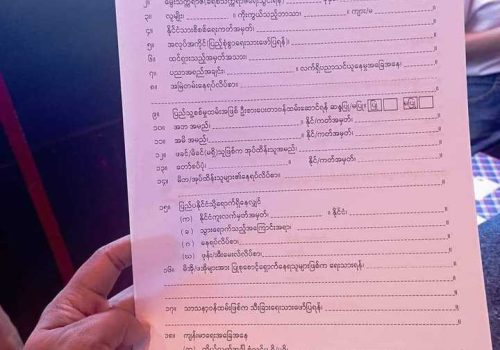 ၂။ မွေးသက္ကရာဇ်(ခရစ်သက္ကရာဇ်ဖြင့်ရေးသွင်းရန်)
၃။ လူမျိုး ။ ကိုးကွယ်သည့်ဘာသာ ။ ကျား/မ
၄။ နိုင်ငံသားစိစစ်ရေးကတ်အမှတ်၊
၅။ အလုပ်အကိုင်(ပြည့်စုံစွာရေးသားဖော်ပြရန်)၊
၆။ ထင်ရှားသည့်အမှတ်အသား၊
၇။ ပညာအရည်အချင်း၊ ။ လက်ရှိပညာသင်ယူနေမှုအခြေအနေ၊
၈။ အမြဲတမ်းနေရပ်လိပ်စာ၊
၉။ ပြည်သူ့စစ်မှုထမ်းအဖြစ် ဦးစားပေးတာဝန်ထမ်းဆောင်ရန် ဆန္ဒပြု/မပြု။ ပြု မပြု
၁၀။ အဘ အမည်၊ နိုင်/ကတ်အမှတ်၊
၁၁။ အမိ အမည်၊ နိုင်/ကတ်အမှတ်၊
၁၂။ ဖခင်/မိခင်(မရှိ)သူဖြစ်က အုပ်ထိန်းသူအမည်၊
၁၃။ တော်စပ်ပုံ၊ နိုင်/ကတ်အမှတ်၊
၁၄။ မိဘ/အုပ်ထိန်းသူများ၏နေရပ်လိပ်စာ၊
၁၅။ ပြည်ပနိုင်ငံသို့ရောက်ရှိနေလျှင်
(က) နိုင်ငံကူးလက်မှတ်အမှတ်၊ ။ နိုင်ငံ၊
(ခ) သွားရောက်သည့်အကြောင်းအရာ၊
(ဂ) နေရပ်လိပ်စာ၊
(ဃ) ဖုန်း/အီးမေးလ်လိပ်စာ၊
၁၆။ မိအို/ဖအိုများအား ပြုစုစောင့်ရှောက်နေရသူများဖြစ်က ရေးသားရန်၊
၁၇။ သာသနာ့ဝန်ထမ်းဖြစ်က သီးခြားရေးသားဖော်ပြရန်၊
၁၈။ ကျန်းမာရေးအခြေအနေ